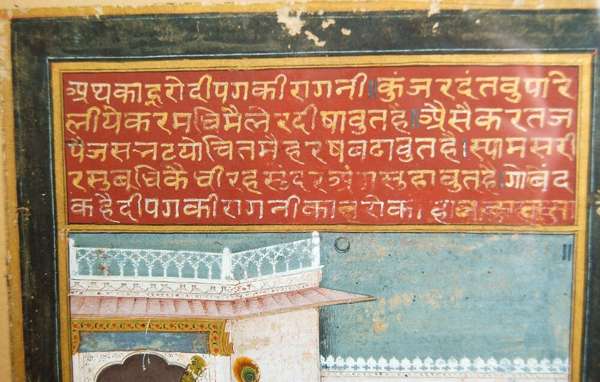 अथ कान्हरो दीपग की रागनी॥ कुंजर दंत वुपारि
लीये कर मधि मैले र दीषावुत है॥ अैसै करत ज
पै ज स नटयो चित मै हरष बढावुत है। स्याम सरी
र सुबुधि कै वीरह सुंदर अंग सुहावुत है॥ गोबिंद
क है दीपग की रागनी कान्हरो